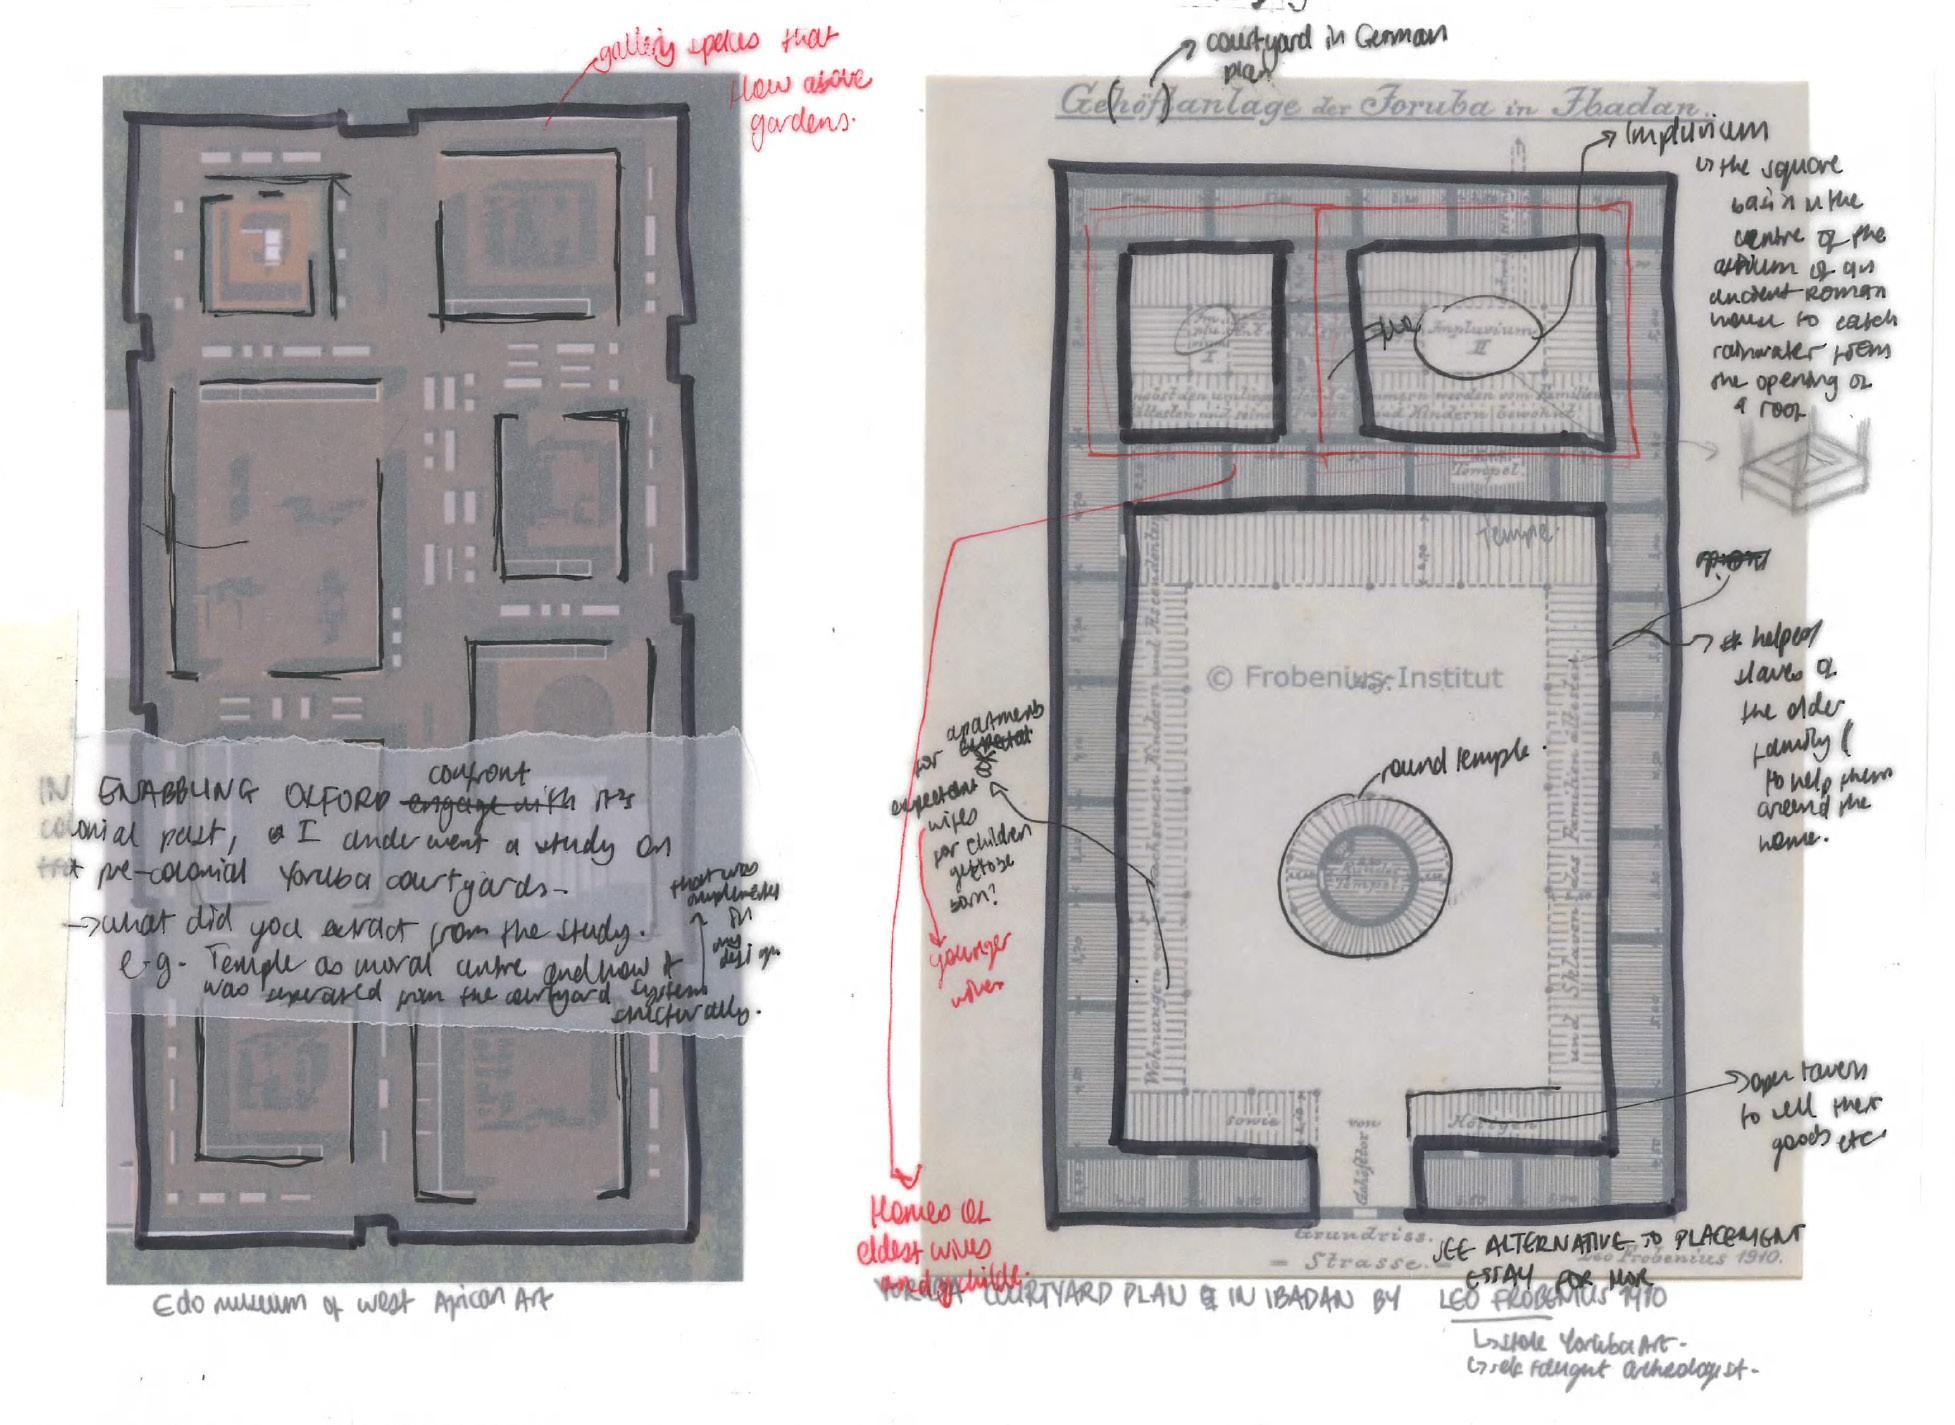 gallery spaces that
flow above
gardens.
Edo museum of west African Art
IN ENABBLING OXFORD confront engage with it's
colonial past, I underwent a study on
pre-colonial Yoruba courtyards-
→ what did you extract from the study.
e-g. Temple as moral centre and how it
was seperated from the courtyard systems
structurally.
that was
implemented
in
my
design
courtyard in German
plan
Gehöftanlage der Joruba in Ibadan.
Impluvium
↳ the square
basin in the
centre of the
atrium of an
ancient Roman
house to catch
rainwater from
the opening of
a roof
Impluvium
I
Impluvium
II
und Kindern bewohnt
Tempel.
Temple.
© Frobenius-Institut
Hof.
round temple.
Runder
Tempel
helpers/
slaves of
the older
family (
to help them
around the
home.
apartments
for
expectant
wifes
for children
yet to be
born?
younger
wives
Homes of
eldest wives
and childr.
Wohnungen von erwachsenen Kindern und Ascendenten
und Sklaven des Familienältesten.
sowie
von
Gehöfttor
open taverns
to sell their
goods etc
Grundriss.
= Strasse. =
Leo Frobenius 1910.
SEE ALTERNATIVE TO PLACEMENT
ESSAY FOR MOR
YORUBA COURTYARD PLAN IN IBADAN BY LEO FROBENIUS 1910
↳ stole Yoruba Art-
↳ self taught archeologist-